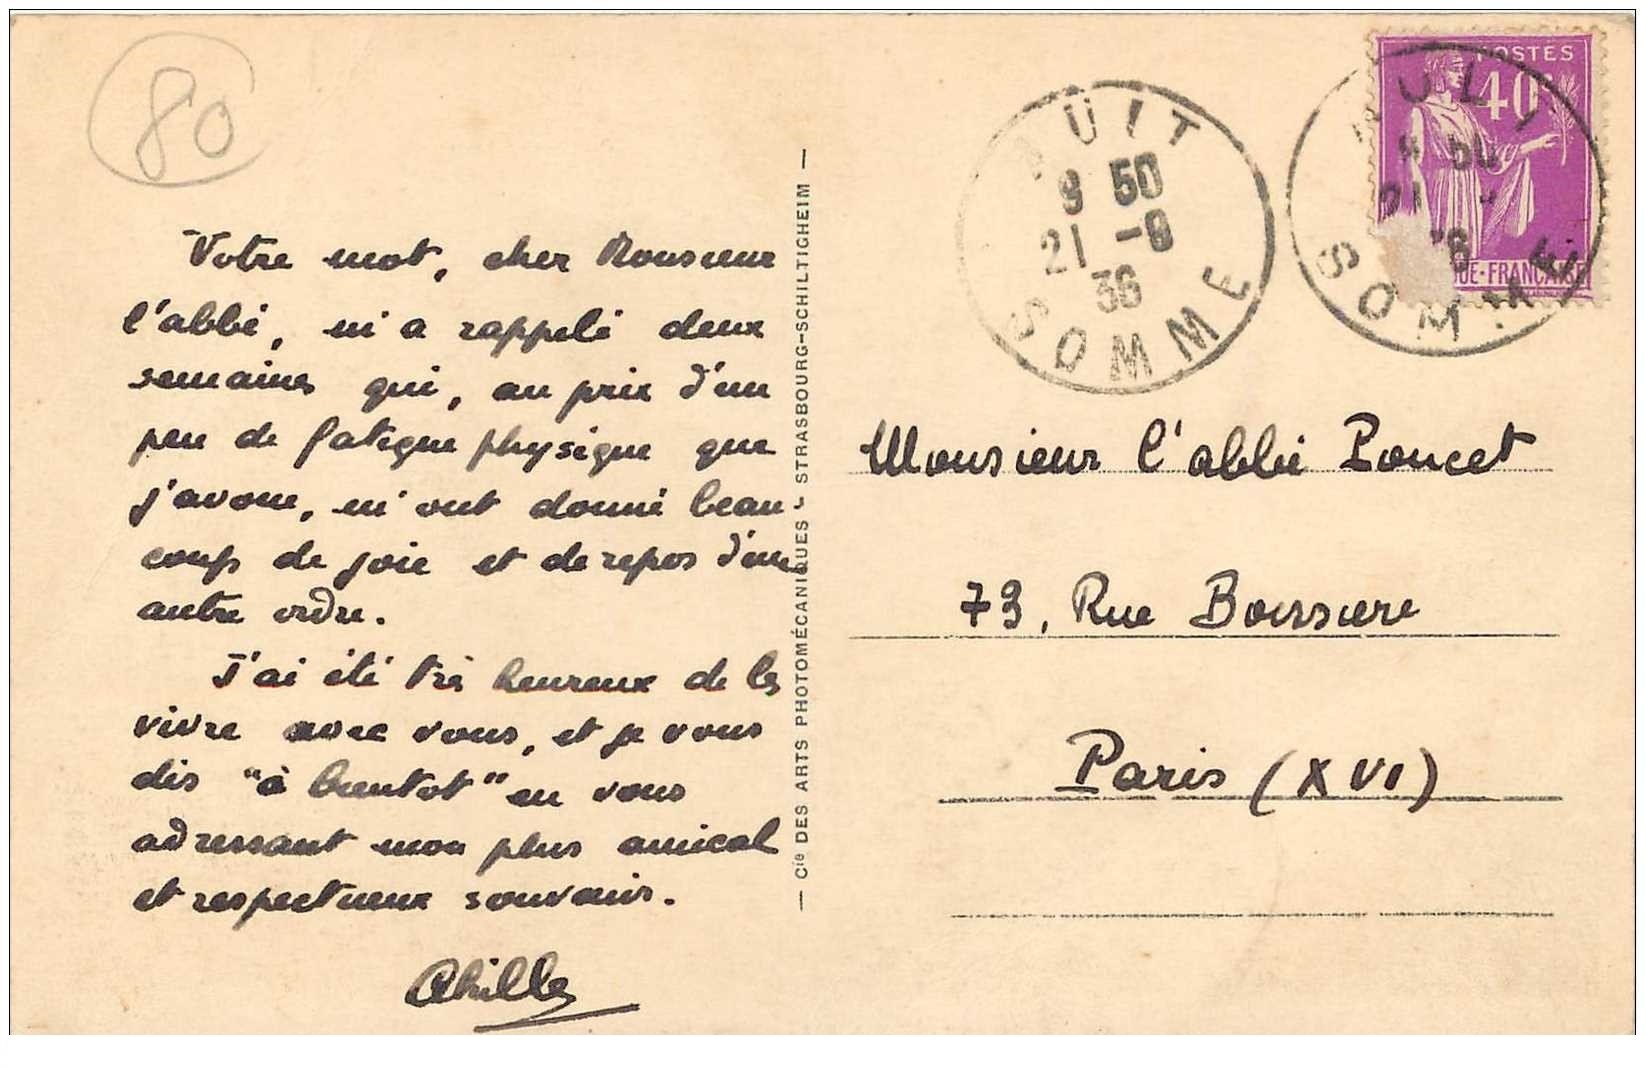 80
Votre mot, cher Monsieur
l'abbé, m'a rappelé deux
semaines qui, au prix d'un
peu de fatigue physique que
j'avoue, m'ont donné beau
coup de joie et de repos d'un
autre ordre.
J'ai été très heureux de les
vivre avec vous, et je vous
dis "à bientot" en vous
adressant mon plus amical
et respectueux souvenir.
Achille
— Cie DES ARTS PHOTOMÉCANIQUES - STRASBOURG-SCHILTIGHEIM —
AULT
9 50
21 -8
36
SOMME
POSTES
40c
SOMME
Monsieur l'abbé Poncet
73, Rue Boissiere
Paris (XVI)